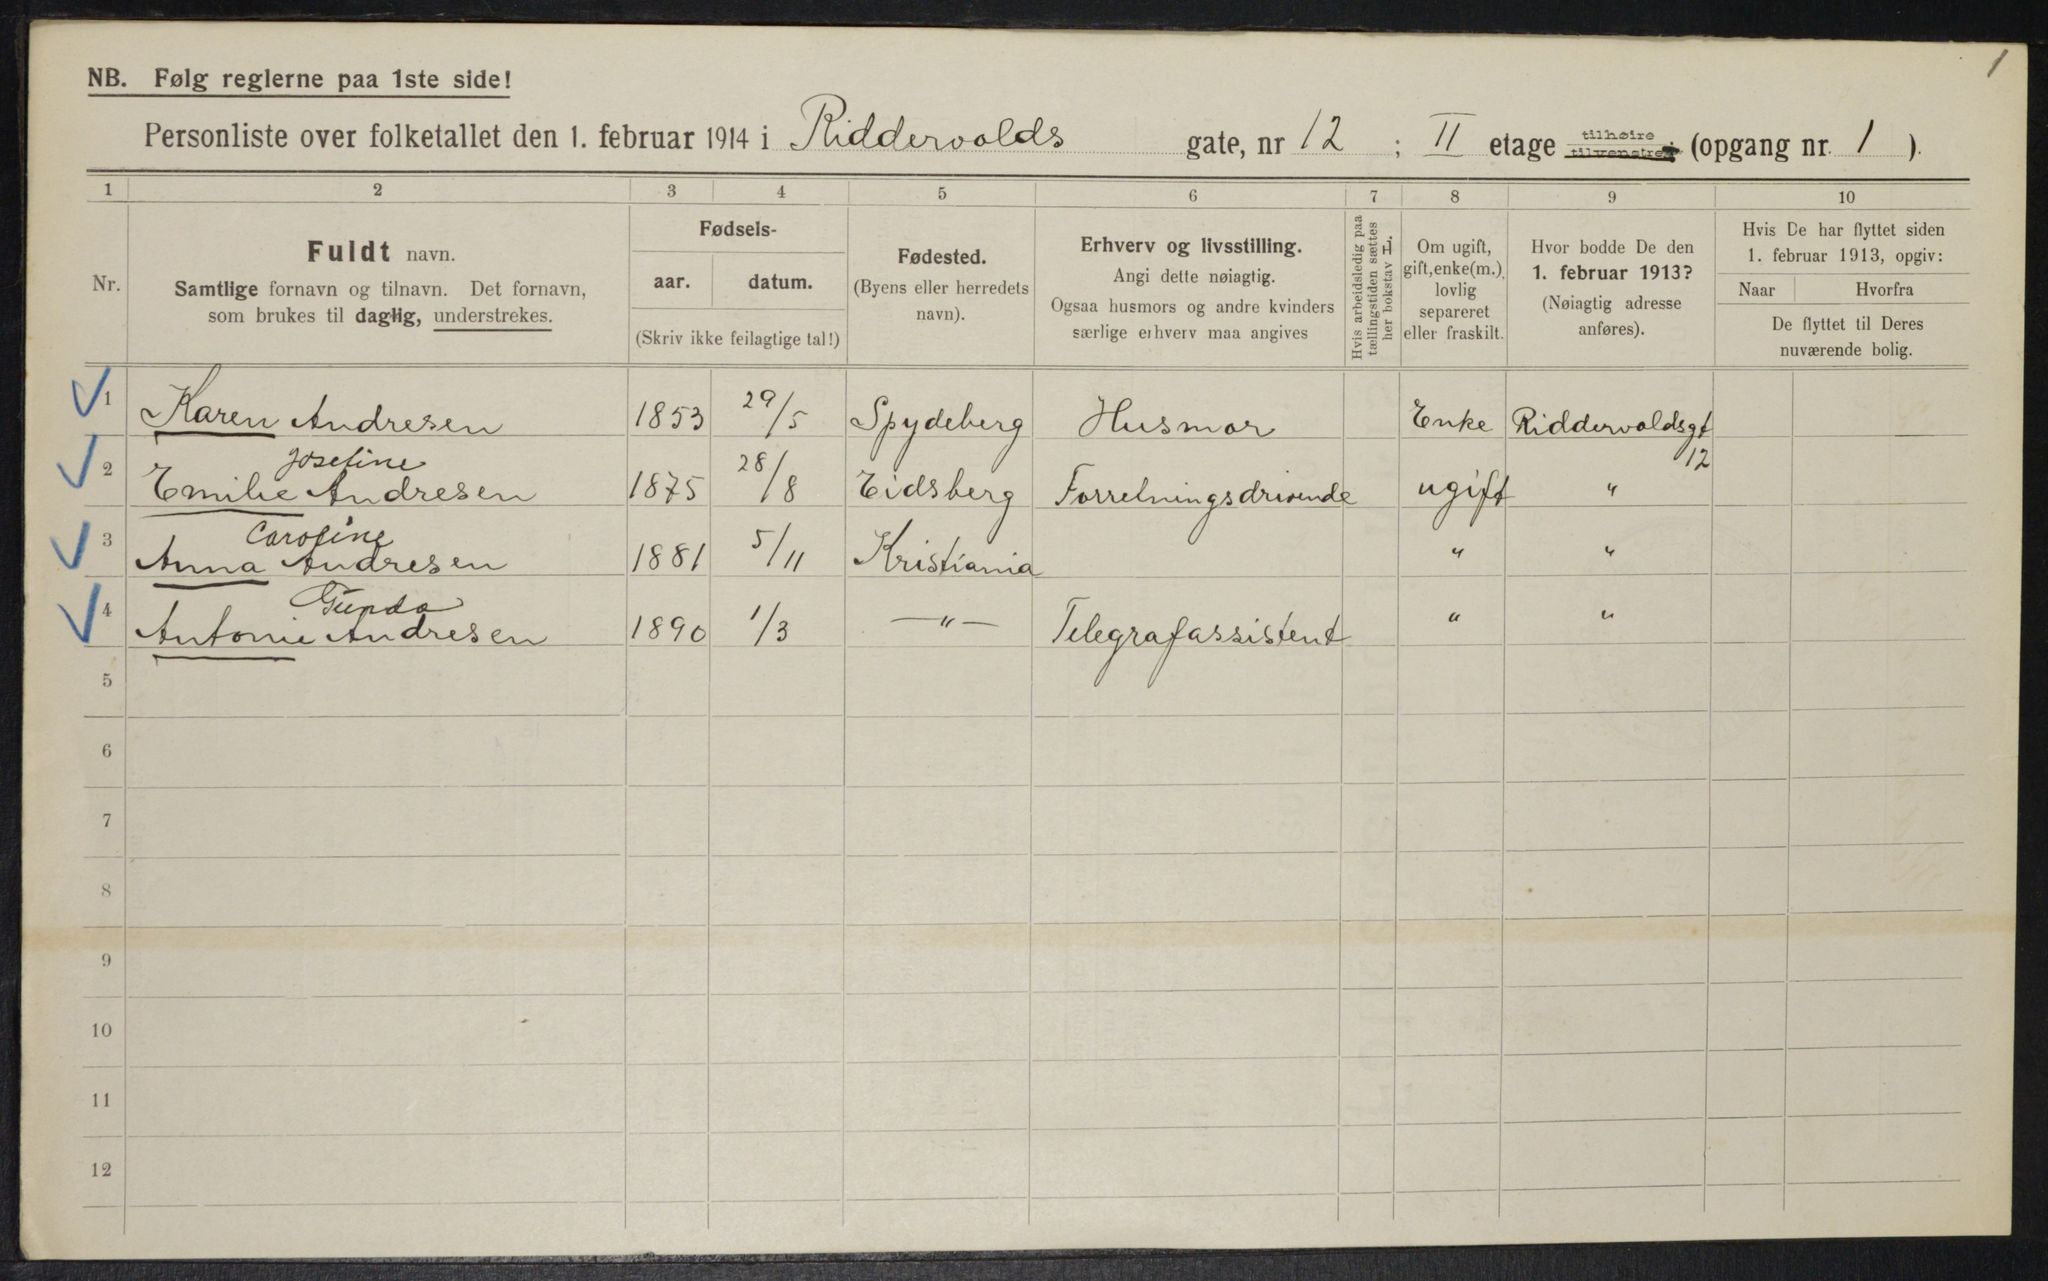 1
NB. Følg reglerne paa 1ste side!
Personliste over folketallet den 1. februar 1914 i Riddervolds gate, nr 12 ; II etage tilhøire tilvenstre (opgang nr. 1 ).
1 2 3 4 5 6 7 8 9 10
Nr.
Fuldt navn.
Samtlige fornavn og tilnavn. Det fornavn,
som brukes til daglig, understrekes.
Fødsels-
aar. datum.
(Skriv ikke feilagtige tal!)
Fødested.
(Byens eller herredets
navn).
Erhverv og livsstilling.
Angi dette nøiagtig.
Ogsaa husmors og andre kvinders
særlige erhverv maa angives
Hvis arbeidsledig paa
tællingstiden sættes
her bokstav L.
Om ugift,
gift, enke(m.),
lovlig
separeret
eller fraskilt.
Hvor bodde De den
1. februar 1913?
(Nøiagtig adresse
anføres).
Hvis De har flyttet siden
1. februar 1913, opgiv:
Naar Hvorfra
De flyttet til Deres
nuværende bolig.
1 Karen Andresen 1853 29/5 Spydeberg Husmor Enke Riddervoldsgt
12
Josefine
2 Emilie Andresen 1875 28/8 Eidsberg Forretningsdrivende ugift "
Caroline
3 Anna Andresen 1881 5/11 Kristiania " "
Gunda
4 Antonie Andresen 1890 1/3 —"— Telegrafassistent " "
5
6
7
8
9
10
11
12